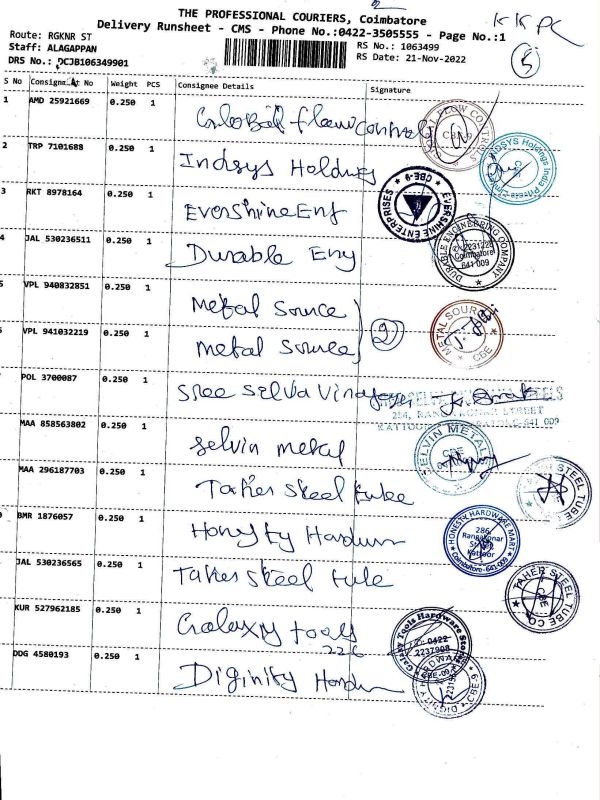 THE PROFESSIONAL COURIERS, Coimbatore
Delivery Runsheet - CMS - Phone No.:0422-3505555 - Page No.:1
KKPC
5
Route: RGKNR ST
RS No.: 1063499
Staff: ALAGAPPAN
RS Date: 21-Nov-2022
DRS No.: DCJB106349901
S No Consignment No Weight PCS Consignee Details Signature
1 AMD 25921669 0.250 1 Global Flow Controls
2 TRP 7101688 0.250 1 Indsys Holdings
INDSYS Holdings India Private
3 RKT 8978164 0.250 1 Evershine Eng
EVERSHINE ENTERPRISES CBE-9
4 JAL 530236511 0.250 1 Durable Eng
DURABLE ENGINEERING COMPANY
2231226
Coimbatore
641 009
VPL 940832851 0.250 1 Metal Source
2
METAL SOURCE CBE
VPL 941032219 0.250 1 Metal Source
POL 3700087 0.250 1 Sree Selva Vinayaga
254, RANGAKONAR STREET
KATTOOR 641 009
MAA 858563802 0.250 1 Selvin metal
SELVIN METALS
MAA 296187703 0.250 1 Taher Steel tube
STEEL TUBE CO
BMR 1876057 0.250 1 Honesty Hardware
HONESTY HARDWARE MART
286
Rangakonar
Street
Kattoor
Coimbatore-641 009
JAL 530236565 0.250 1 Taher Steel tube
TAHER STEEL TUBE CO
CBE
KUR 527962185 0.250 1 Galaxy tools
226
Galaxy Tools Hardware Stores
0422
2237908
CBE-09
DDG 4580193 0.250 1 Diginity Hardware
DIGNITY HARDWARE CBE-9